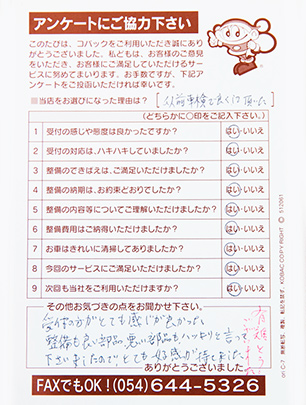 アンケートにご協力下さい
このたびは、コバックをご利用いただき誠にありがとうございました。私ども は、お客様のご意見をいただき、お客様にご満足していただけるサービスに努めてまいります。お手数ですが、下記アンケートをご投函いただければ幸いです。
■当店をお選びになった理由は?
以前車検で良くして頂いた
(どちらかに○印をご記入下さい。)
1 受付の感じや態度は良かったですか? はい・いいえ
2 受付の対応は、ハキハキしていましたか? はい・いいえ
3 整備のできばえは、ご満足いただけましたか? はい・いいえ
4 整備の納期は、お約束どおりでしたか? はい・いいえ
5 整備の内容等についてご理解いただけましたか? はい・いいえ
6 整備費用はご納得いただけましたか? はい・いいえ
7 お車はきれいに清掃してありましたか? はい・いいえ
8 今回のサービスにご満足いただけましたか? はい・いいえ
9 次回も当社をご利用いただけますか? はい・いいえ
その他お気づきの点をお聞かせ下さい。
受付の方がとても感じが良かった。
整備も良い部品、悪い部品もハッキリと言って
下さいましたのでとても好感が持てました。
有難とう
ございました
ありがとうございました
FAXでもOK!(054)644-5326
on C-7 無断転写、複製、転記を禁ず。 KOBAC COPY RIGHT © 512061